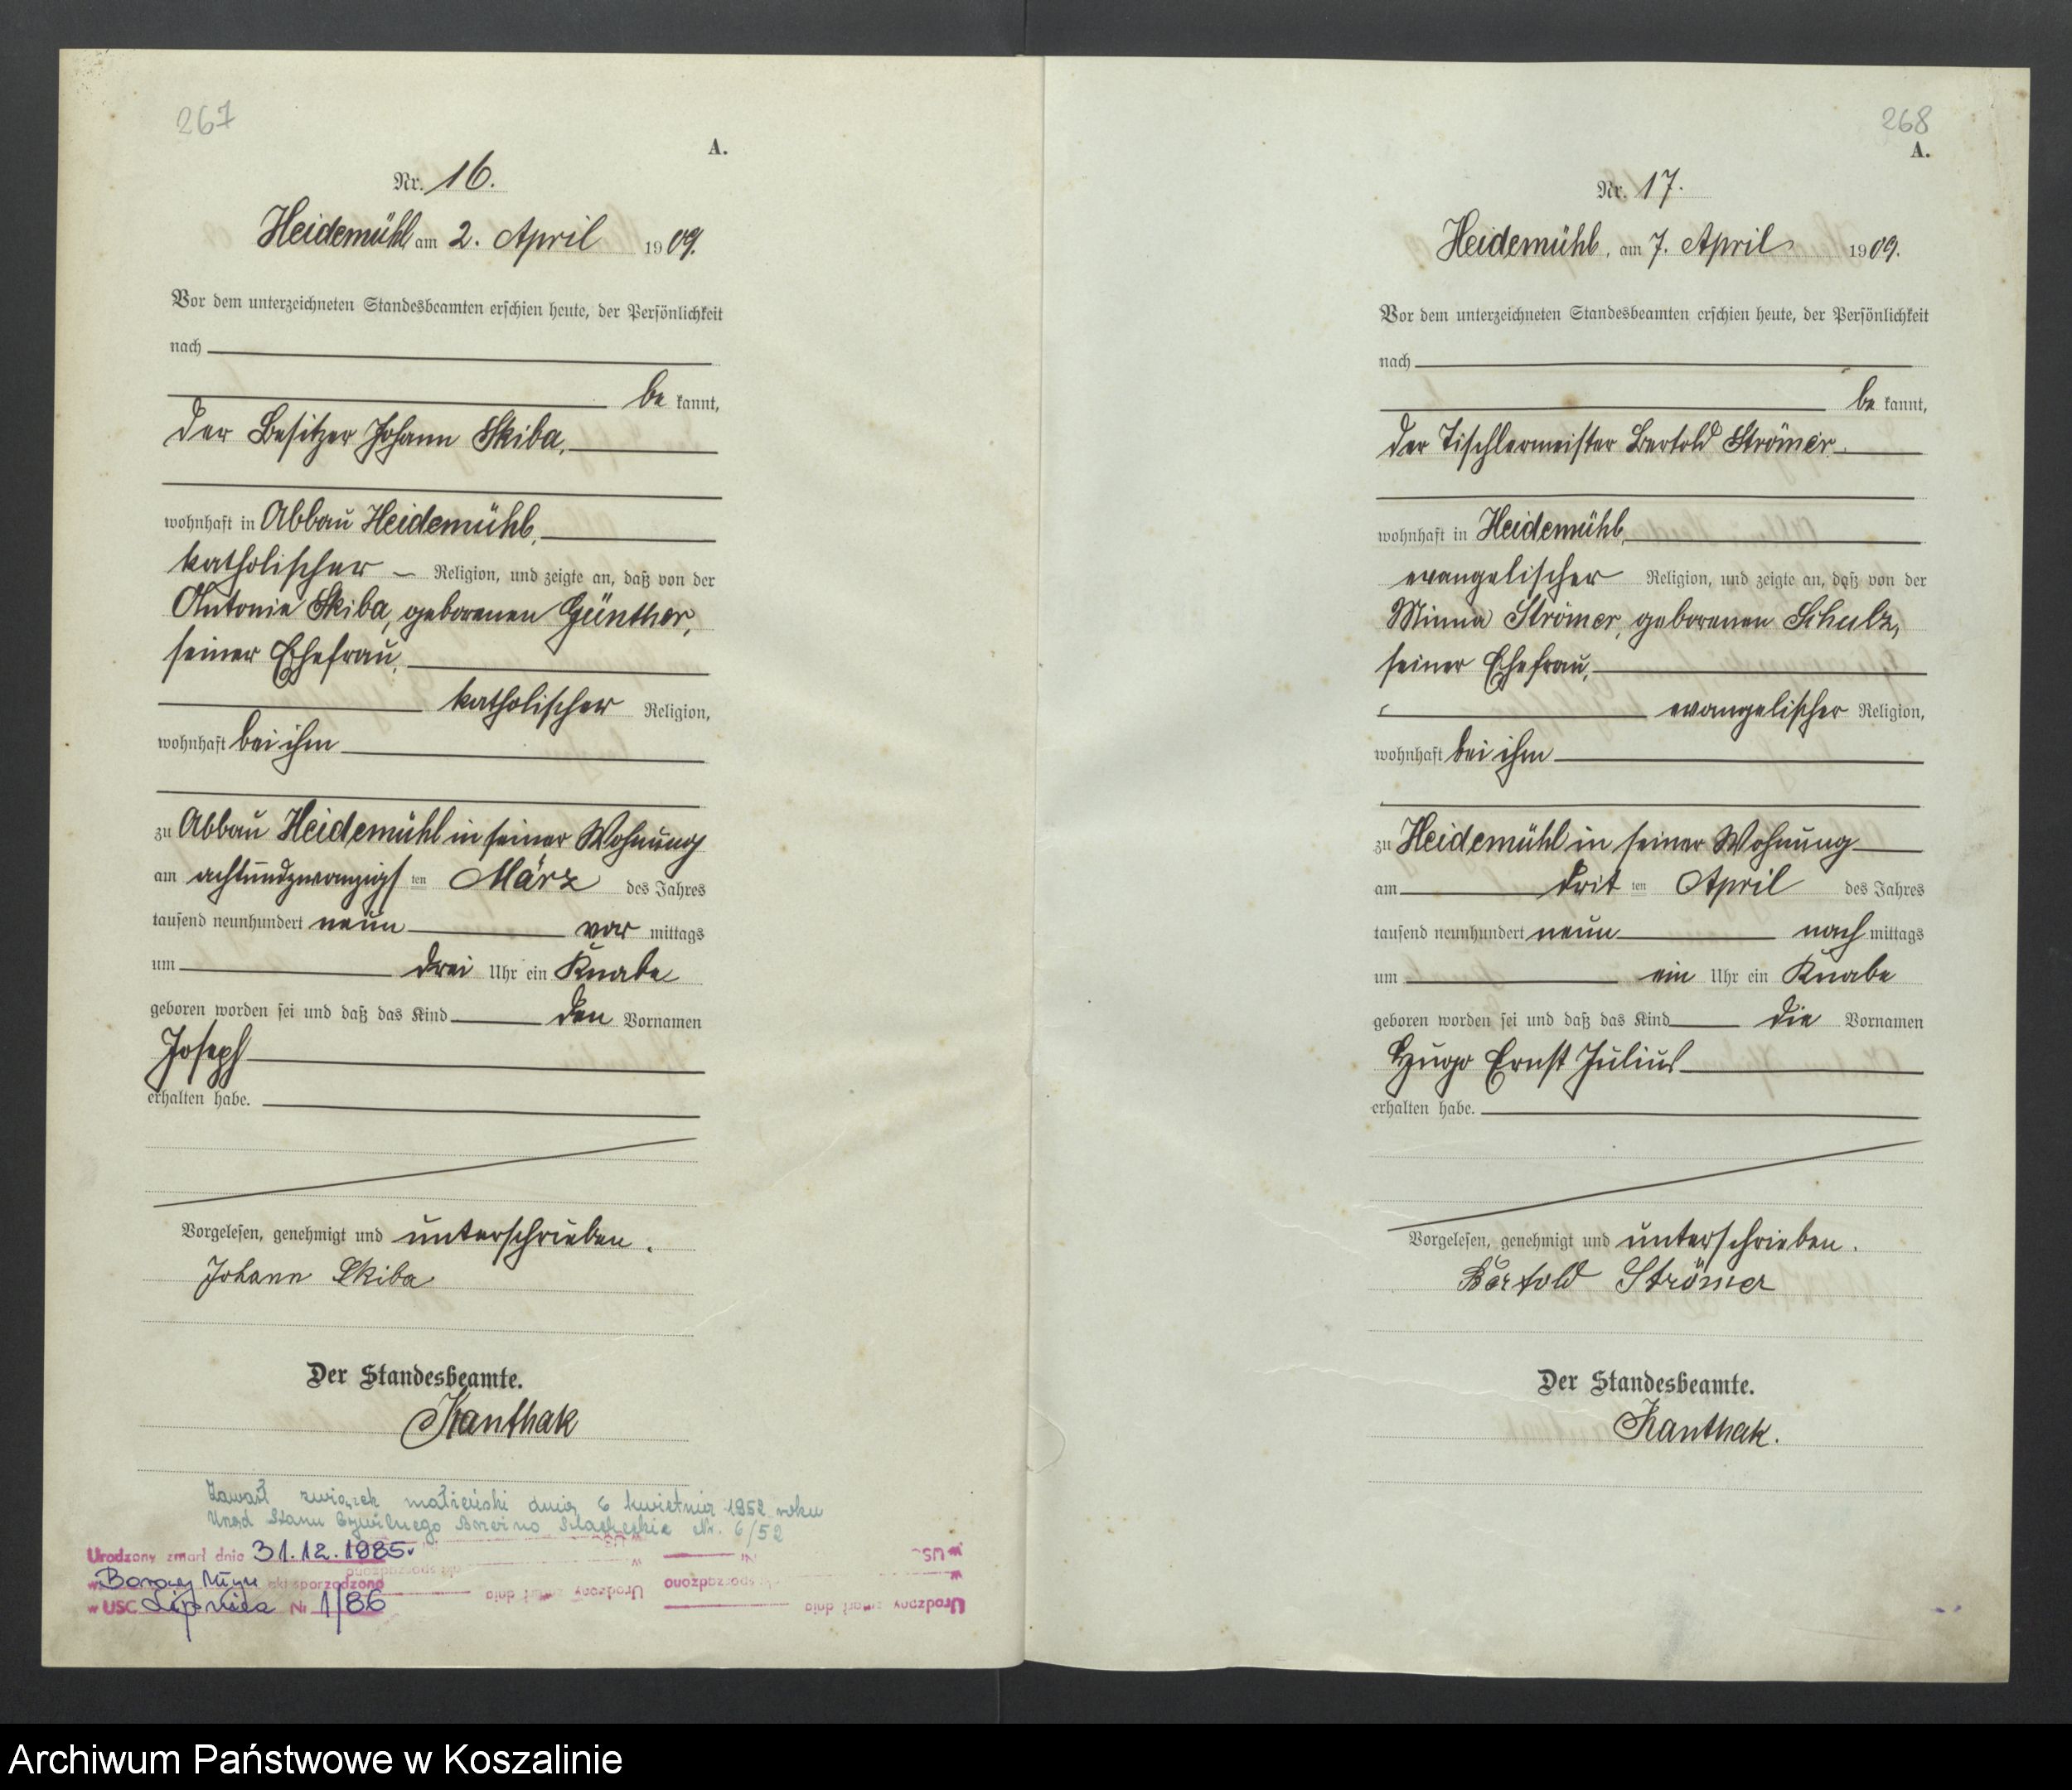 267
A.
Nr. 16.
Heidemühl am 2. April 1909.
Vor dem unterzeichneten Standesbeamten erschien heute, der Persönlichkeit
nach
be kannt,
der Besitzer Johann Skiba,
wohnhaft in Abbau Heidemühl,
katholischer Religion, und zeigte an, daß von der
Antonie Skiba, geborenen Günther,
seiner Ehefrau,
katholischer Religion,
wohnhaft bei ihm
zu Abbau Heidemühl in seiner Wohnung
am achtundzwanzigsten März des Jahres
tausend neunhundert neun vor mittags
um drei Uhr ein Knabe
geboren worden sei und daß das Kind den Vornamen
Joseph
erhalten habe.
Vorgelesen, genehmigt und unterschrieben.
Johann Skiba
Der Standesbeamte.
Kanthak
Zawarł związek małżeński dnia 6 kwietnia 1952 roku
Urząd Stanu Cywilnego Nr. 6/52
Urodzony zmarł dnia 31.12.1985.
w Borowy Młyn akt sporządzono
w USC Lipnica Nr 1/86
268
A.
Nr. 17.
Heidemühl, am 7. April 1909.
Vor dem unterzeichneten Standesbeamten erschien heute, der Persönlichkeit
nach
be kannt,
der Tischlermeister Bertold Strömer
wohnhaft in Heidemühl,
evangelischer Religion, und zeigte an, daß von der
Minna Strömer, geborenen Schulz,
seiner Ehefrau,
evangelischer Religion,
wohnhaft bei ihm
zu Heidemühl in seiner Wohnung
am dritten April des Jahres
tausend neunhundert neun nach mittags
um ein Uhr ein Knabe
geboren worden sei und daß das Kind die Vornamen
Hugo Ernst Julius
erhalten habe.
Vorgelesen, genehmigt und unterschrieben.
Bertold Strömer
Der Standesbeamte.
Kanthak.
Archiwum Państwowe w Koszalinie